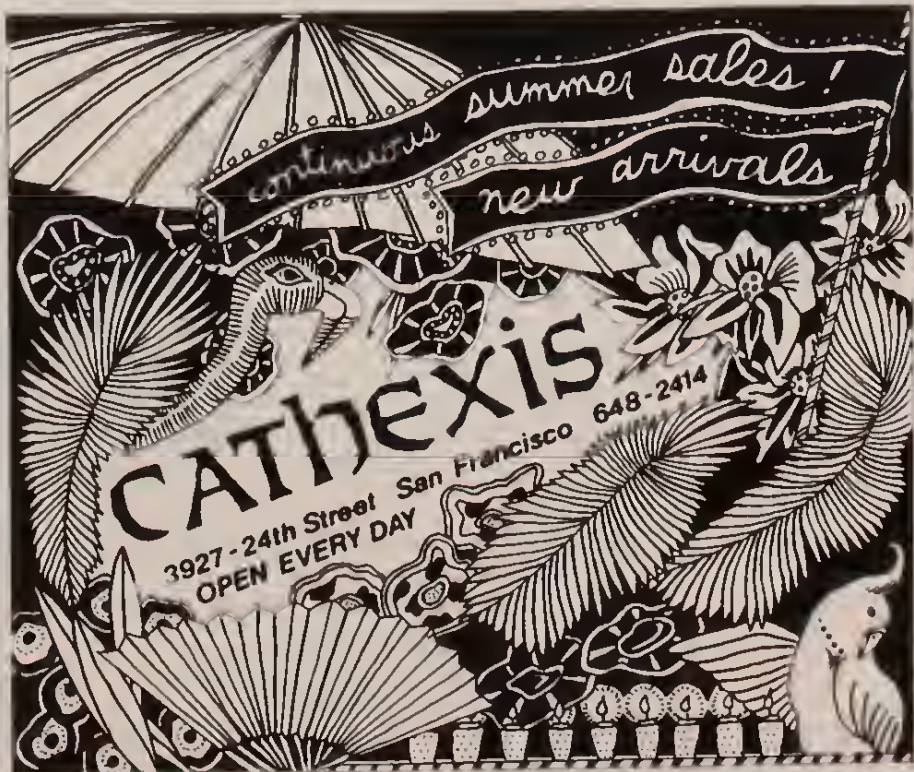 continuous summer sales!
new arrivals
CAThEXiS
3927-24th Street San Francisco 648-2414
OPEN EVERY DAY